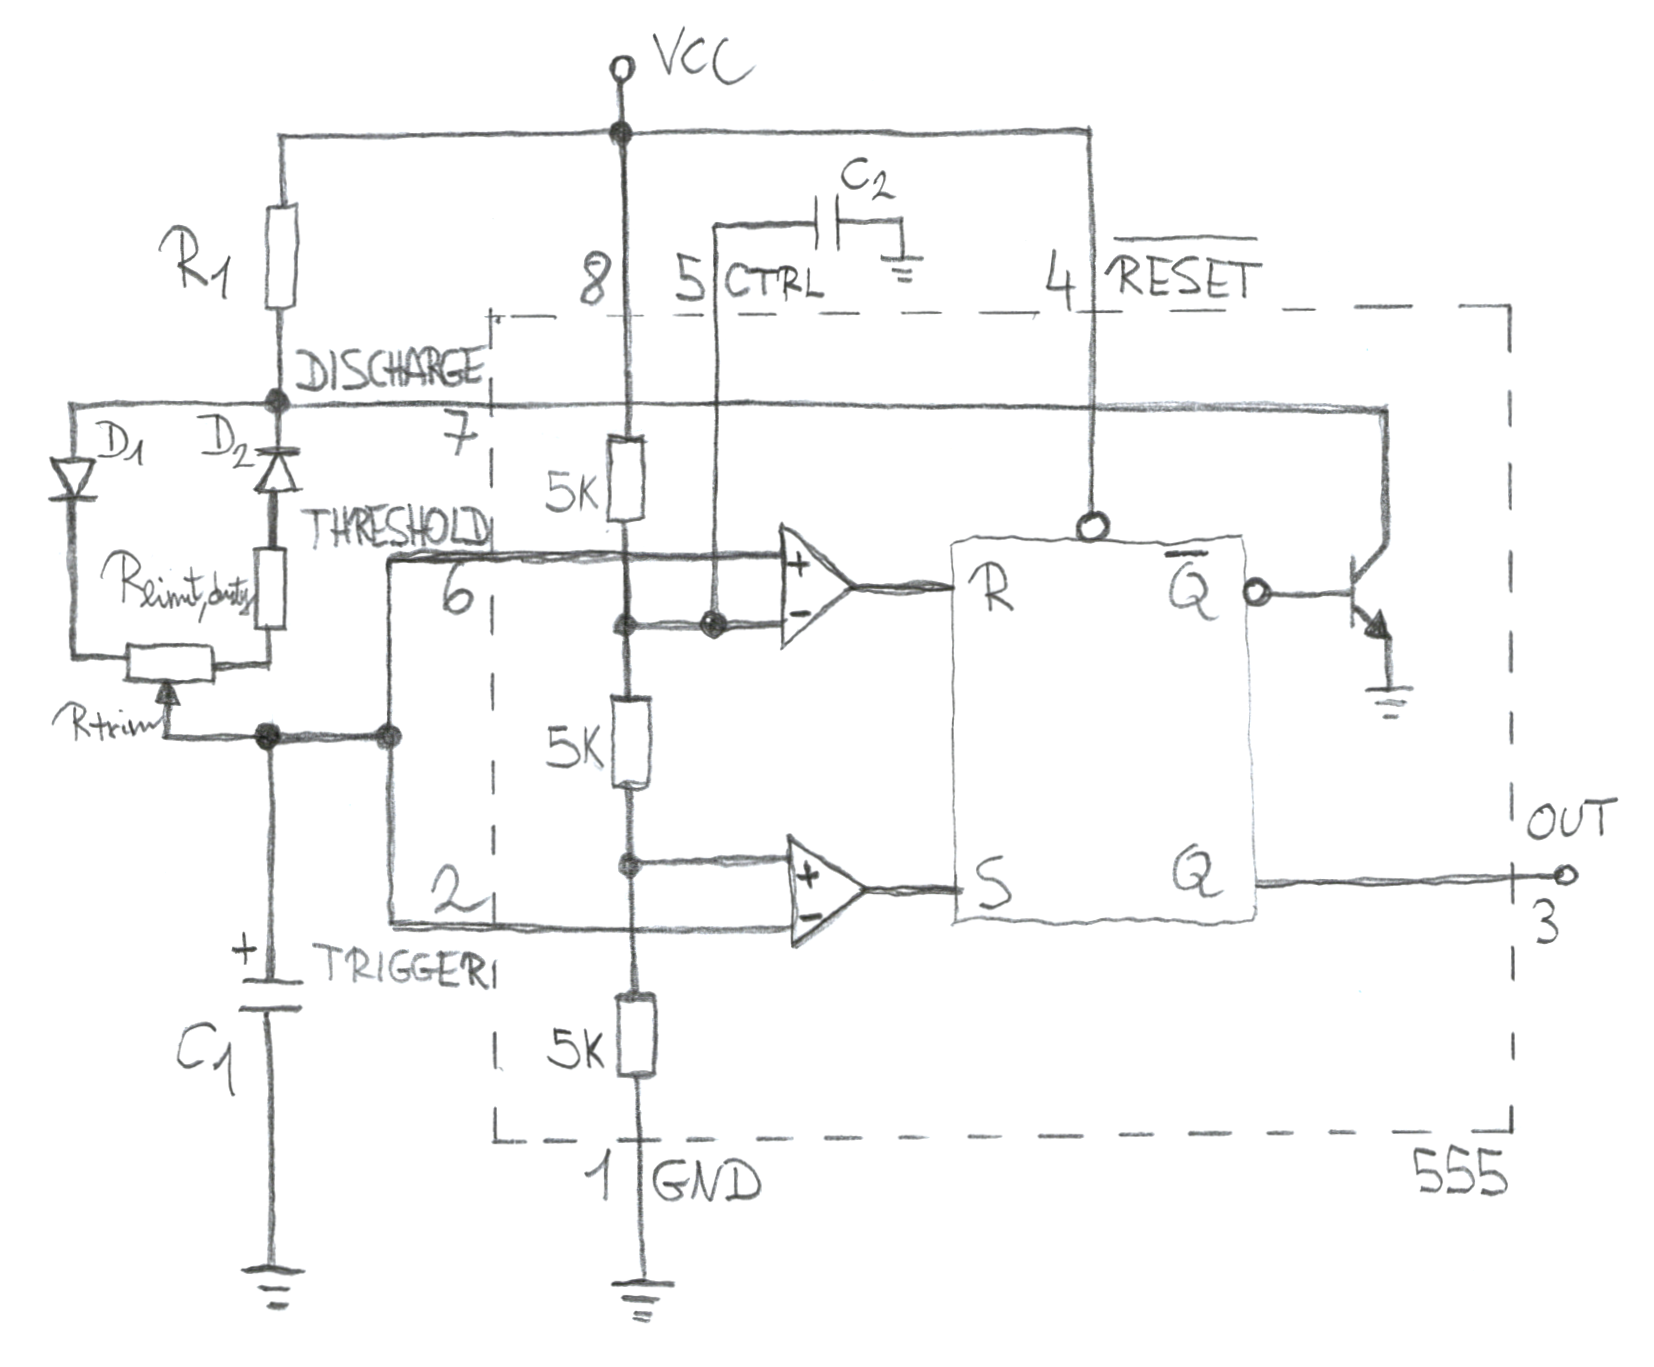 VCC
C2
R1
8
5 CTRL
4 RESET
DISCHARGE
7
D1
D2
5K
THRESHOLD
6
+
-
R
Q
Rlimit,duty
Rtrim
5K
OUT
3
2
+
-
S
Q
+
TRIGGER
C1
5K
1 GND
555